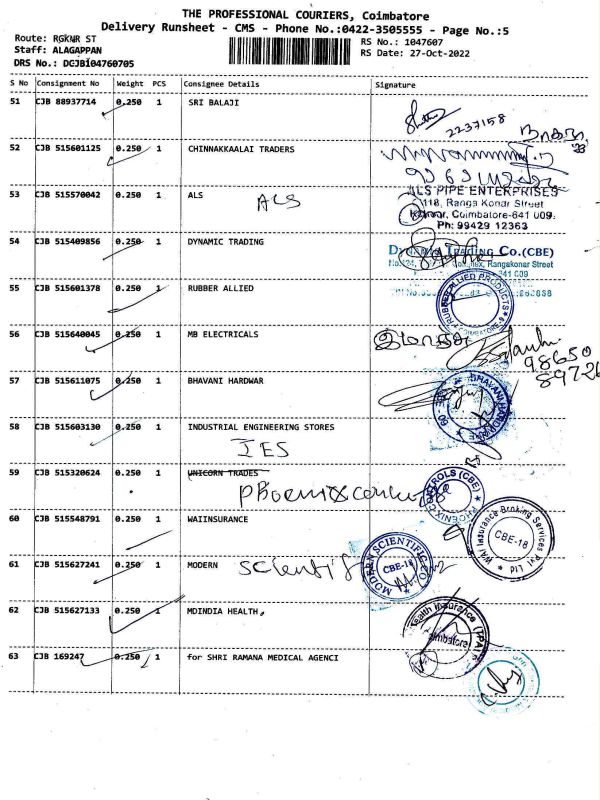 THE PROFESSIONAL COURIERS, Coimbatore
Delivery Runsheet - CMS - Phone No.:0422-3505555 - Page No.:5
Route: RGKNR ST
Staff: ALAGAPPAN
DRS No.: DCJBI04760705
RS No.: 1047607
RS Date: 27-Oct-2022
S No Consignment No Weight PCS Consignee Details Signature
51 CJB 88937714 0.250 1 SRI BALAJI
2237158
52 CJB 515601125 0.250 1 CHINNAKKAALAI TRADERS
53 CJB 515570042 0.250 1 ALS ALS
ALS PIPE ENTERPRISES
118, Ranga Konar Street
Coimbatore-641 009.
Ph: 99429 12363
54 CJB 515409856 0.250 1 DYNAMIC TRADING
Trading Co.(CBE)
Rangakonar Street
55 CJB 515601378 0.250 1 RUBBER ALLIED
RUBBER ALLIED PRODUCTS
COIMBATORE-9
56 CJB 515640045 0.250 1 MB ELECTRICALS
98650
89726
57 CJB 515611075 0.250 1 BHAVANI HARDWAR
BHAVANI
58 CJB 515603130 0.250 1 INDUSTRIAL ENGINEERING STORES
IES
59 CJB 515320624 0.250 1 UNICORN TRADES
Phoenix
PHOENIX CONTROLS (CBE)
60 CJB 515548791 0.250 1 WAIINSURANCE
WAI Insurance Broking Services Pvt Ltd
CBE-18
61 CJB 515627241 0.250 1 MODERN Scientif
MODERN SCIENTIFIC CO
CBE-18
62 CJB 515627133 0.250 1 MDINDIA HEALTH,
Health Insurance (TPA)
Coimbatore
63 CJB 169247 0.250 1 for SHRI RAMANA MEDICAL AGENCI